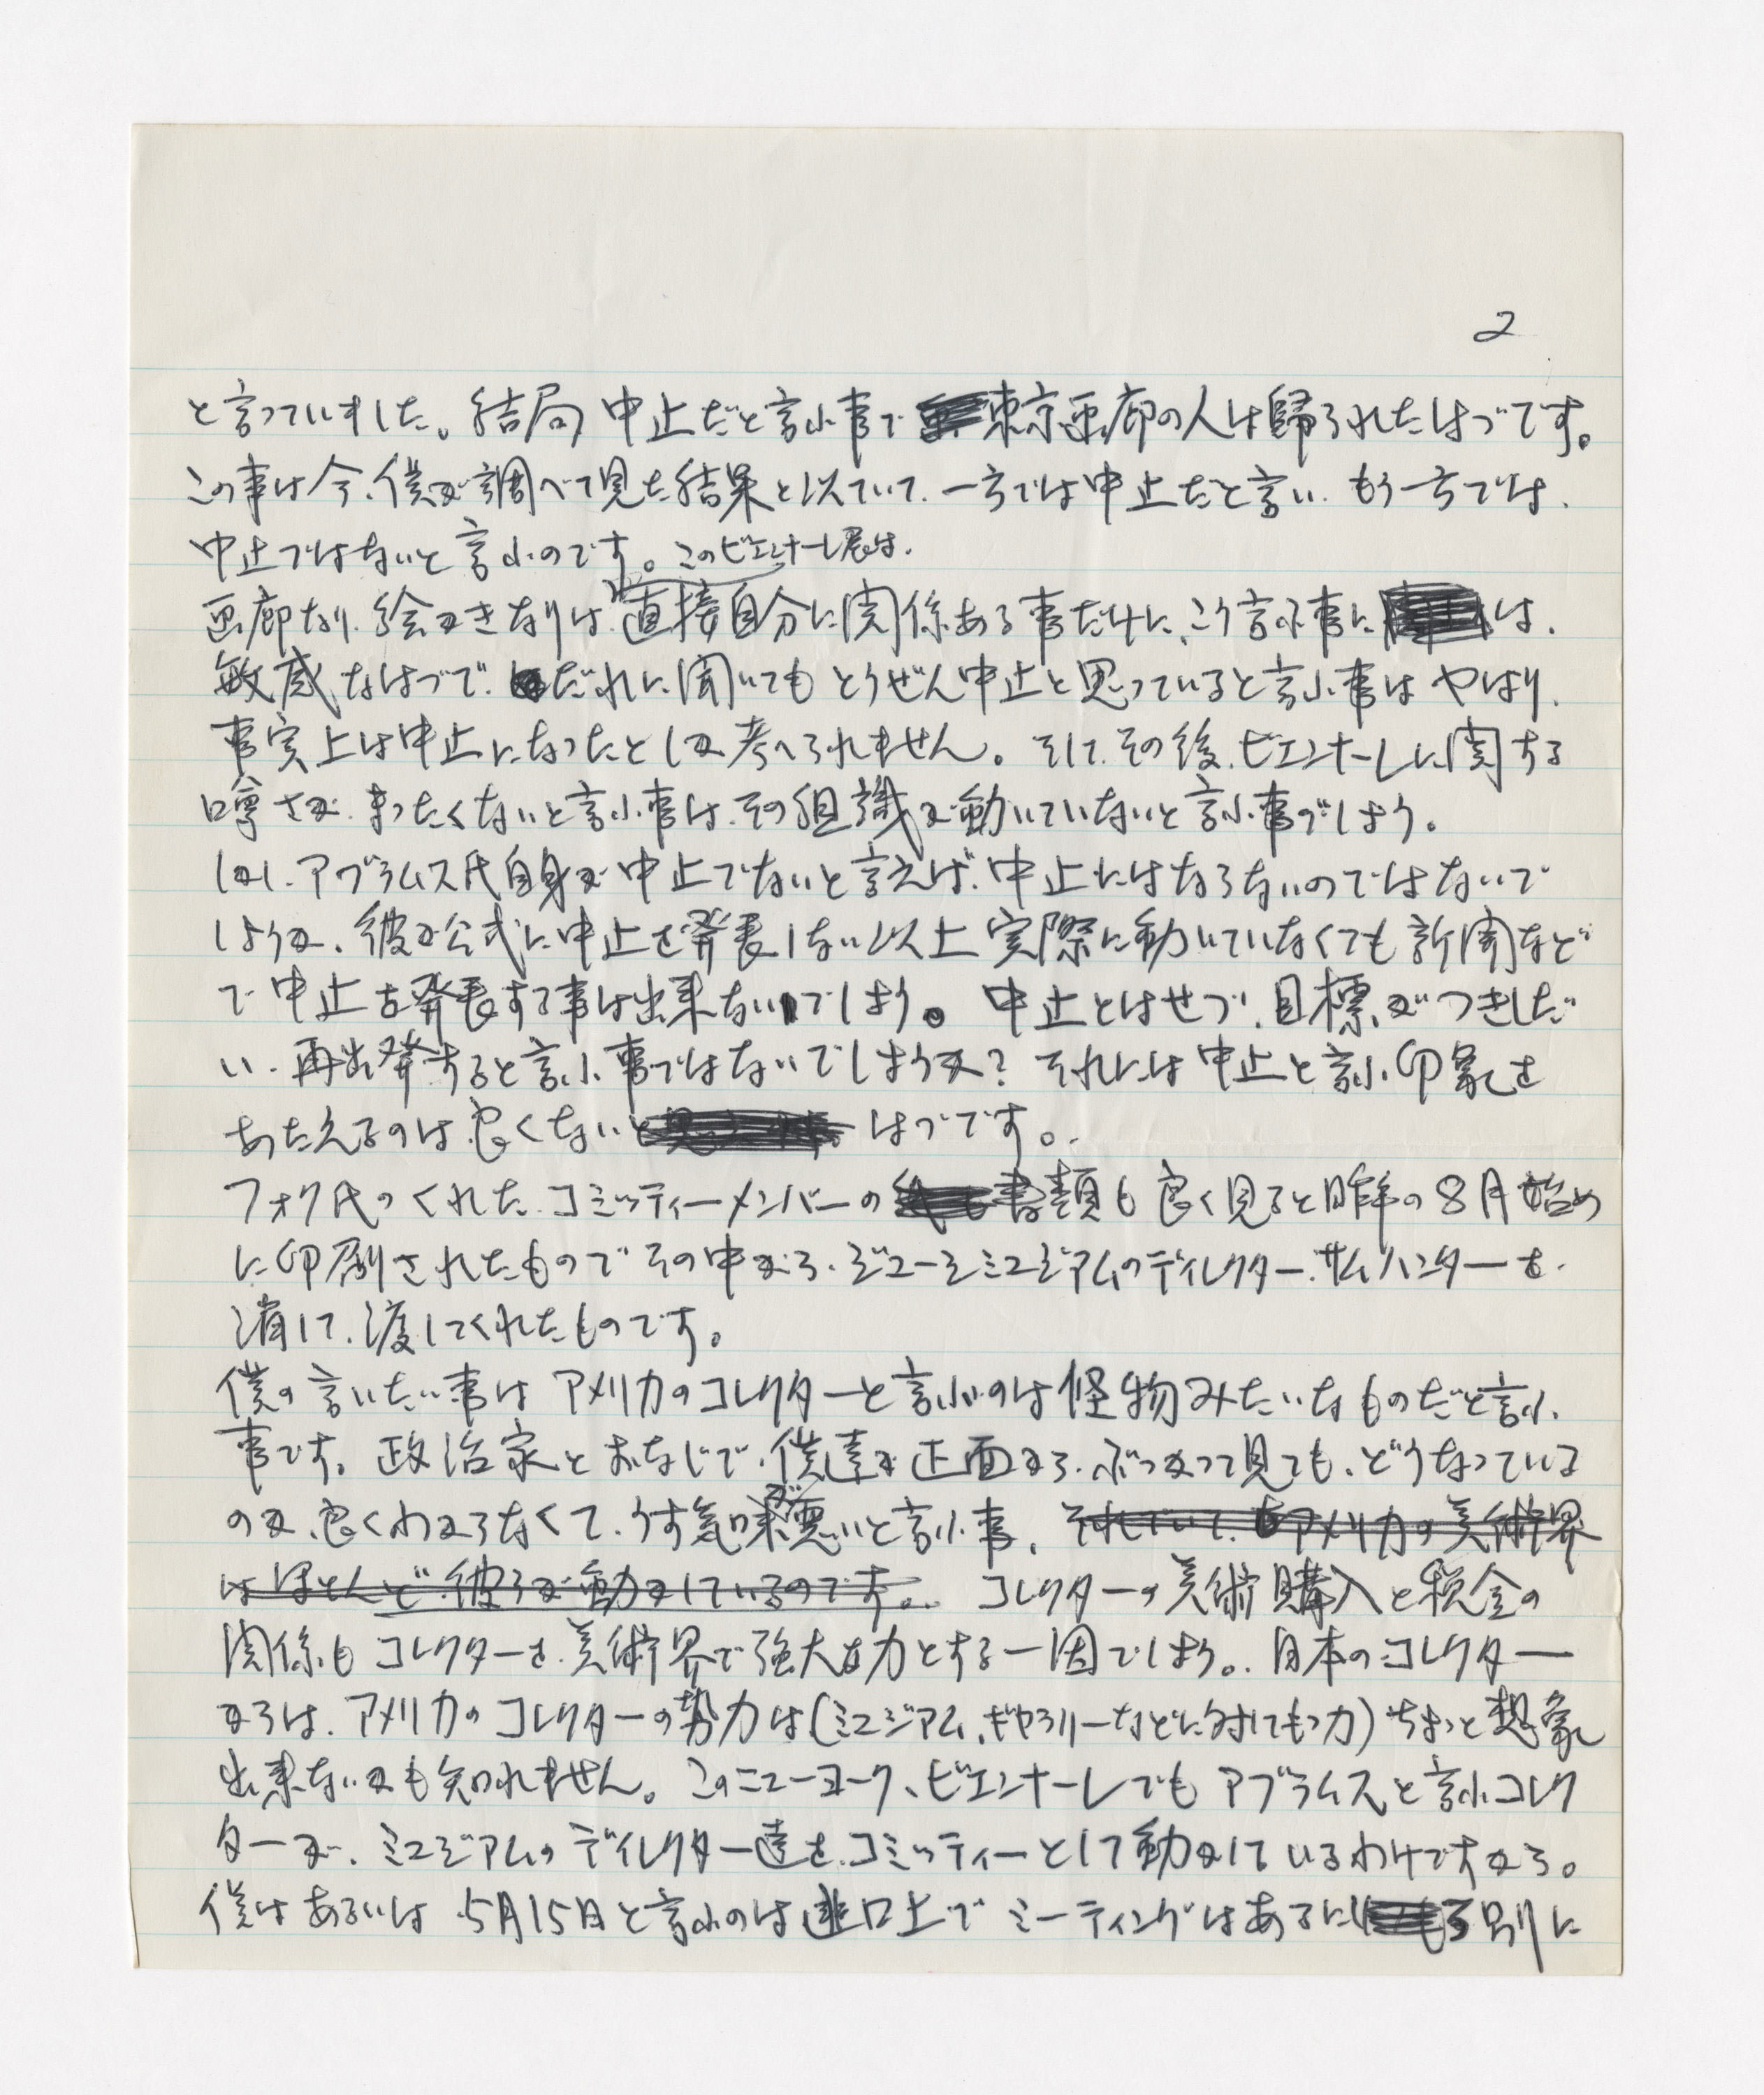 2
と言っていました。結局中止だと言ふ事で東京画廊の人は歸られたはづです。
この事は今、僕が調べて見た結果と以ていて、一方では中止だと言い、もう一方では、
中止ではないと言ふのです。このビエンナーレ展は、
画廊なり、絵かきなりは、直接自分に関係ある事だけに、こう言ふ事には、
敏感なはづで、だれに聞いてもとうぜん中止と思っていると言ふ事はやはり、
事実上は中止になったとしか考へられません。そして、その後、ビエンナーレに関する
噂さが、まったくないと言ふ事は、その組織が動いていないと言ふ事でしょう。
しかし、アブラムス氏自身が中止でないと言えば、中止にはならないのではないで
しょうか、彼が公式に中止を発表しない以上実際に動いていなくても新聞など
で中止を発表する事は出来ないでしょう。中止とはせづ、目標がつきしだ
い、再出発すると言ふ事ではないでしょうか?それには中止と言ふ印象を
あたえるのは良くないはづです。
フォク氏のくれた、コミッティーメンバーの書類も良く見ると昨年の8月始め
に印刷されたものでその中から、ジューシミュジアムのディレクター、サムハンターを
消して、渡してくれたものです。
僕の言いたい事はアメリカのコレクターと言ふのは怪物みたいなものだと言ふ
事です。政治家とおなじで、僕達が正面から、ぶっかって見ても、どうなっている
のか、良くわからなくて、うす気味が悪いと言ふ事、それでいて、アメリカの美術界
はほとんど彼らが動かしているのです。コレクターの美術購入と税金の
関係もコレクターを美術界で強大な力とする一因でしょう。日本のコレクター
からは、アメリカのコレクターの勢力は(ミュジアム、ギャラリーなどに対してもつ力)ちょっと想象
出来ないかも知れません。このニューヨーク、ビエンナーレでもアブラムスと言ふコレク
ターが、ミュジアムのディレクター達を、コミッティーとして動かしているわけですから。
僕はあるいは5月15日と言ふのは進口上でミーティングはあるにしろ別に